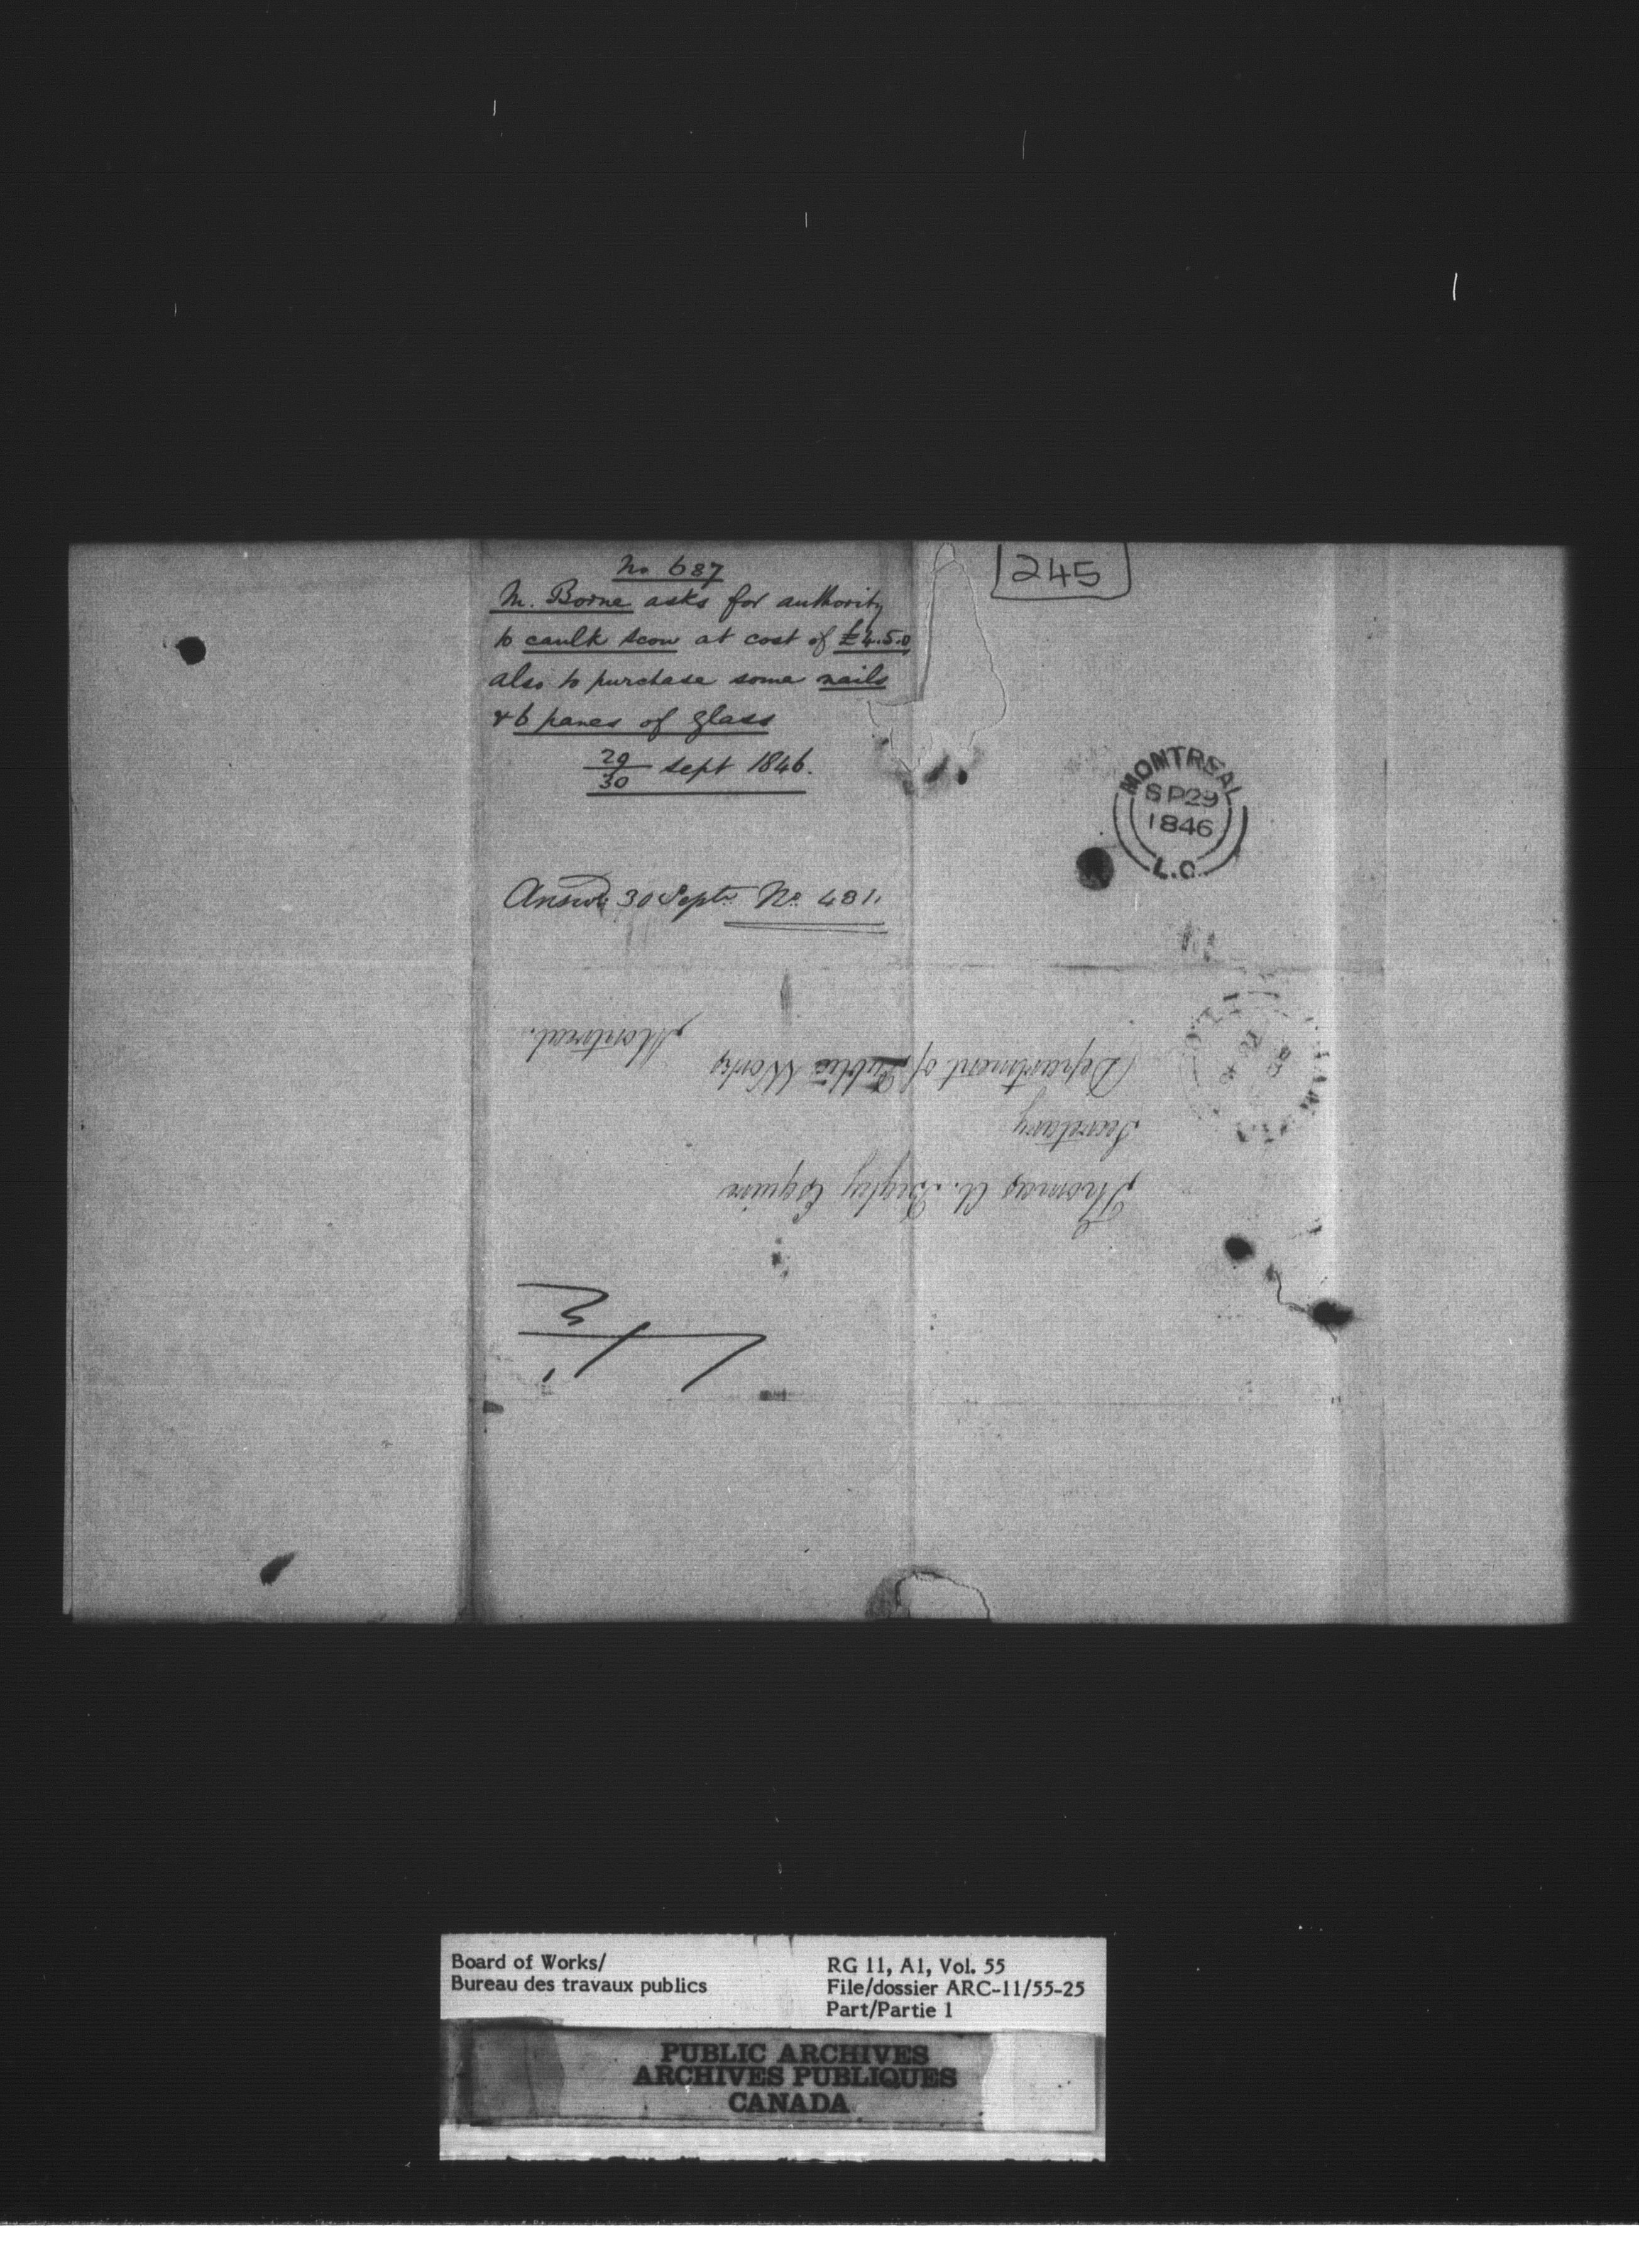 No 687
M. Borne asks for authority
to caulk scow at cost of £4.5.0
also to purchase some nails
& 6 panes of glass
29/30 sept 1846.
Answd. 30 Septr. No. 481.
245
MONTREAL
SP 29
1846
L.C.
Thomas A. Begly Esquire
Secretary
Department of Public Works
Montreal.
Board of Works/
Bureau des travaux publics
RG 11, A1, Vol. 55
File/dossier ARC-11/55-25
Part/Partie 1
PUBLIC ARCHIVES
ARCHIVES PUBLIQUES
CANADA